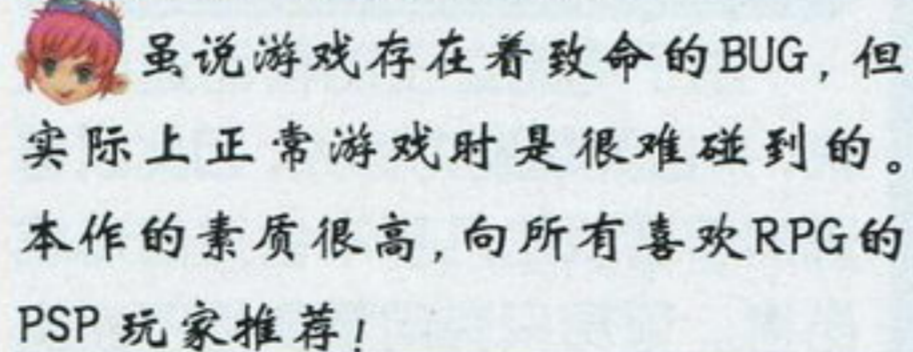 虽说游戏存在着致命的BUG，但
实际上正常游戏时是很难碰到的。
本作的素质很高，向所有喜欢RPG的
PSP 玩家推荐！